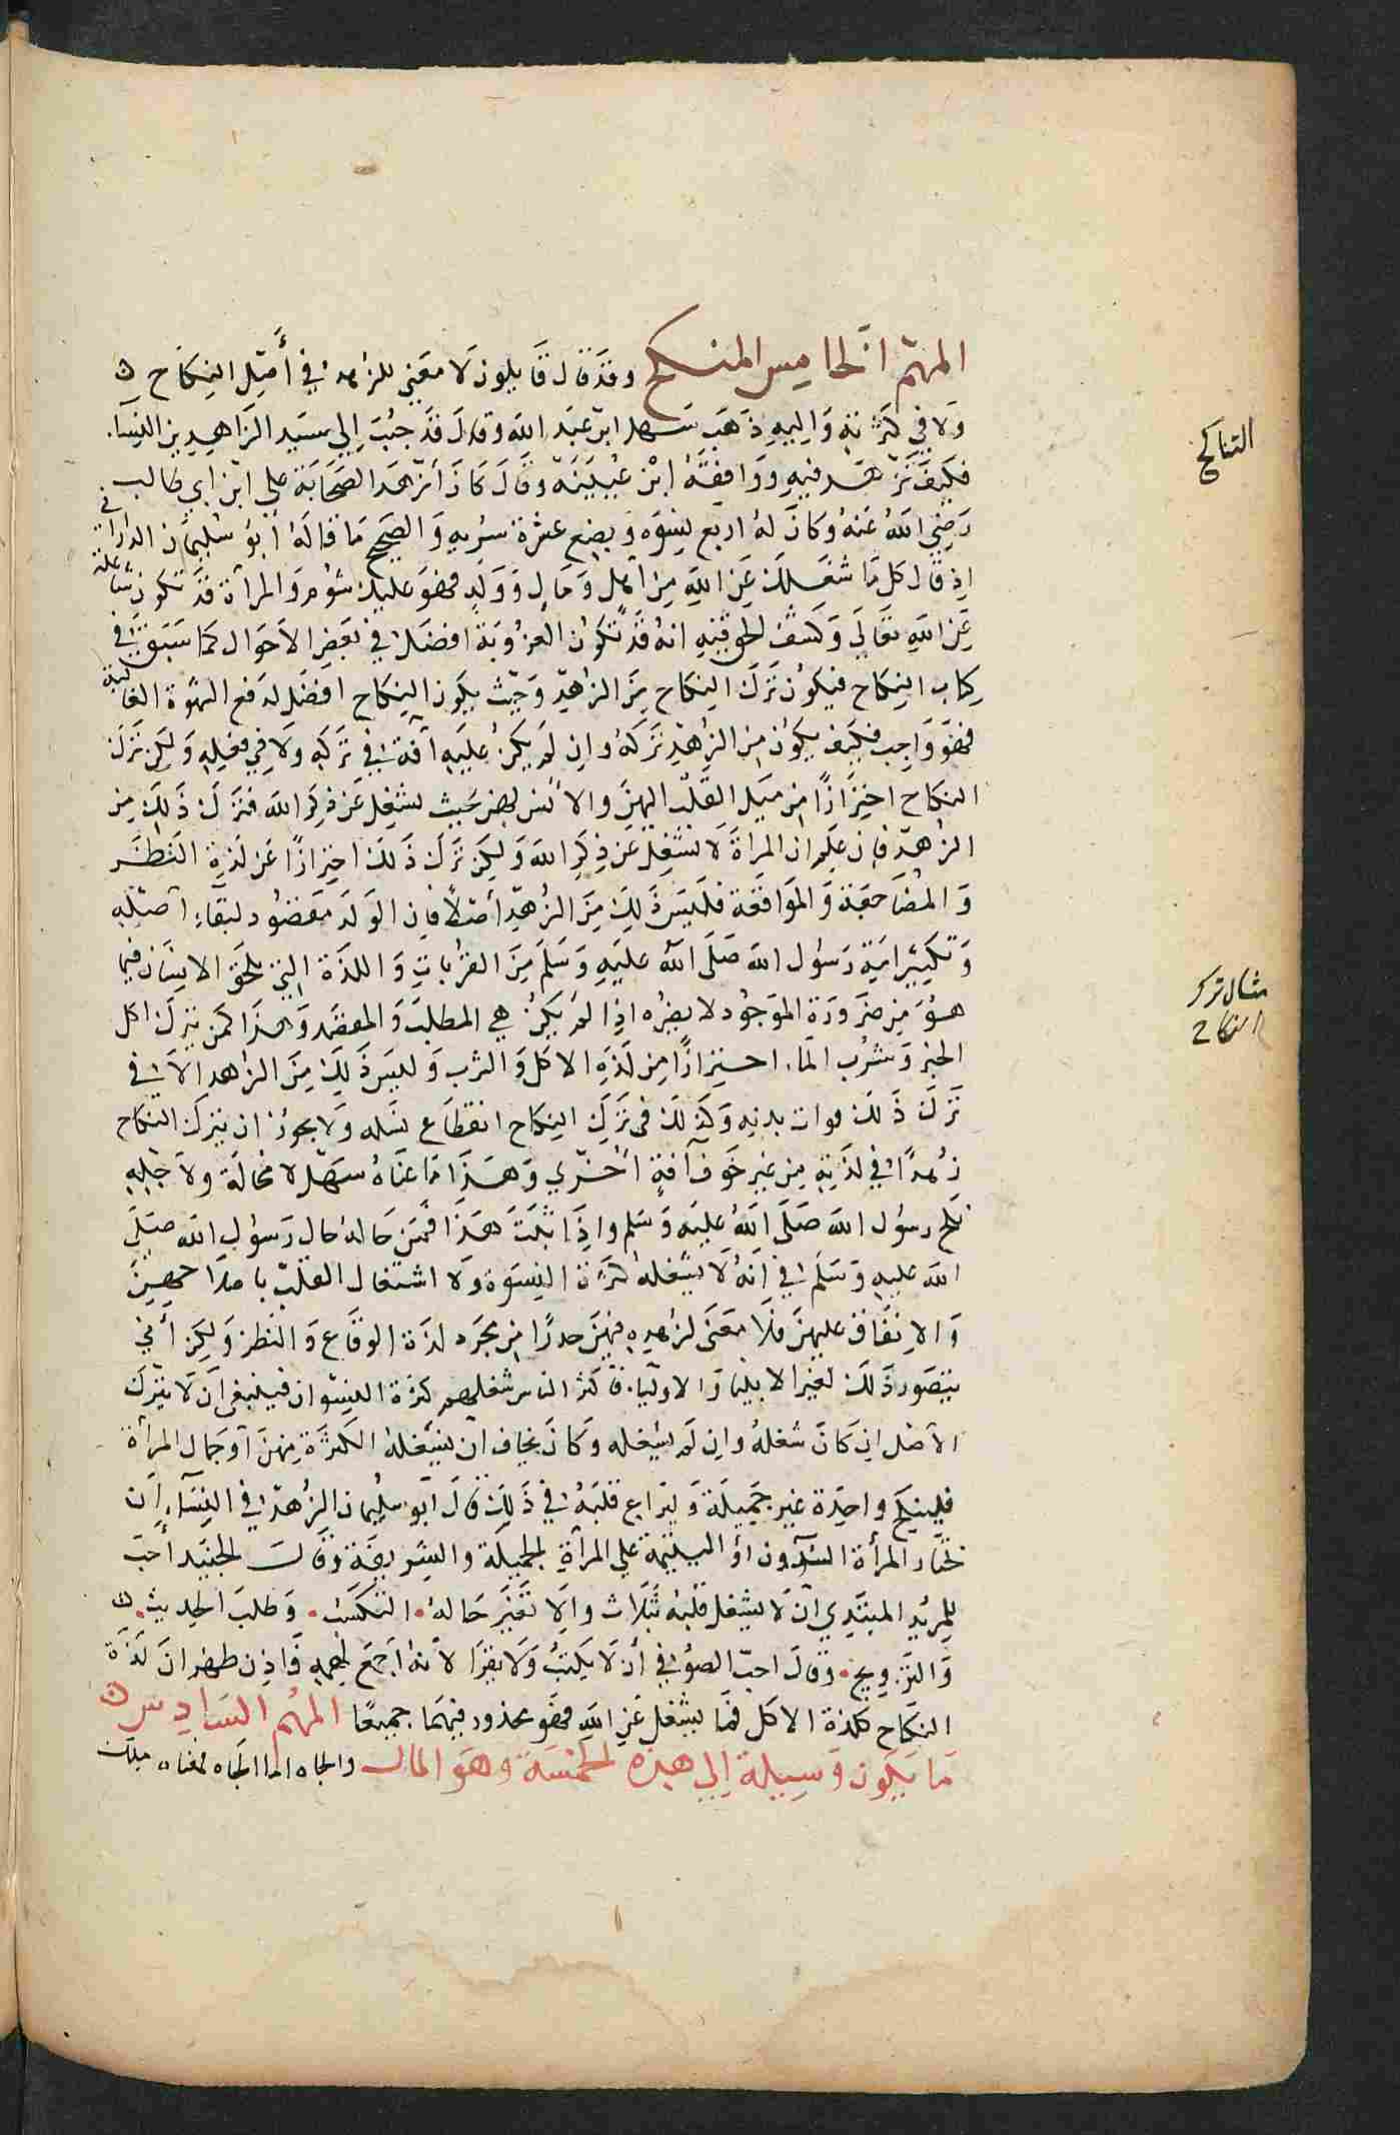 المهم الخامس المنكح وقد قال قايلون لا معنى للزهد في أصل النكاح
ولا في كثرته واليه ذهب سهل ابن عبد الله وقال قد حبب الى سيد الزاهدين النسا
فكيف نزهد فيه ووافقه ابن عيينة وقال كان ازهد الصحابة على ابن ابي طالب
رضي الله عنه وكان له اربع نسوه وبضع عشرة سريه والصحيح ما قاله أبو سليمان الداراني
اذ قال كل ما شغلك عن الله من اهل ومال وولد فهو عليك شؤم والمرأة قد تكون شاغلة
عن الله تعالى وكشف الحق فيه انه قد تكون العزوبة افضل في بعض الاحوال كما سبق في
كتاب النكاح فيكون ترك النكاح من الزهد وحيث يكون النكاح افضل لدفع الشهوة الغالبة
فهو واجب فكيف يكون من الزهد تركه وان لم يكن عليه آفة في تركه ولا في فعله ولكن ترك
النكاح احترازا من ميل القلب اليهن والانس بهن بحيث يشغل عن ذكر الله فترك ذلك من
الزهد فان علم ان المراة لا تشغل عن ذكر الله ولكن ترك ذلك احترازا عن لذة النظر
والمضاجعة والمواقعة فليس ذلك من الزهد أصلا فان الولد مقصود لبقاء اصله
وتكثير امة رسول الله صلى الله عليه وسلم من القربات واللذة التي تلحق الانسان فيما
هو من ضرورة الموجود لا يضره اذا لم يكن هي المطلب والمقصد وهذا كمن ترك اكل
الخبز وشرب الما احترازا من لذة الاكل والشرب وليس ذلك من الزهد الان في
ترك ذلك فوات بدنه وكذلك في ترك النكاح انقطاع نسله ولا يجوز ان يترك النكاح
زهدا في لذته من غير خوف آفة أخرى وهذا ما عناه سهل لا محالة ولاجله
نكح رسول الله صلى الله عليه وسلم واذا ثبت هذا فمن حاله حال رسول الله صلى
الله عليه وسلم في انه لا يشغله كثرة النسوة ولا اشتغال القلب باصلاحهن
والانفاق عليهن فلا معنى لزهده فيهن حدرا من مجرد لذة الوقاع والنظر ولكن أنى
يتصور ذلك لغير الانبيا والاوليا فاكثر الناس شغلهم كثرة النسوان فينبغى ان لا يترك
الاصل ان كان شغله وان لم يشغله وكان يخاف ان يشغله الكثرة منهن أو جمال المرأة
فلينكح واحدة غير جميلة وليراع قلبه في ذلك قال ابو سليمان الزهد في النساء ان
تختار المرأة الدون أو اليتيمة على المرأة الجميلة والشريفة وقال الجنيد أحب
للمريد المبتدي ان لا يشغل قلبه بثلاث والا تغير حاله التكسب وطلب الحديث
والتزويج وقال احب الصوفي أن لا يكتب ولا يقرا لانه اجمع لهمه فاذن ظهر ان لذة
النكاح كلذة الاكل فما يشغل عن الله فهو محذور فيهما جميعا المهم السادس
ما يكون وسيلة الي هذه الخمسة وهو المال والجاه اما الجاه فمعناه ملك
التناكح
مثال ترك
النكاح